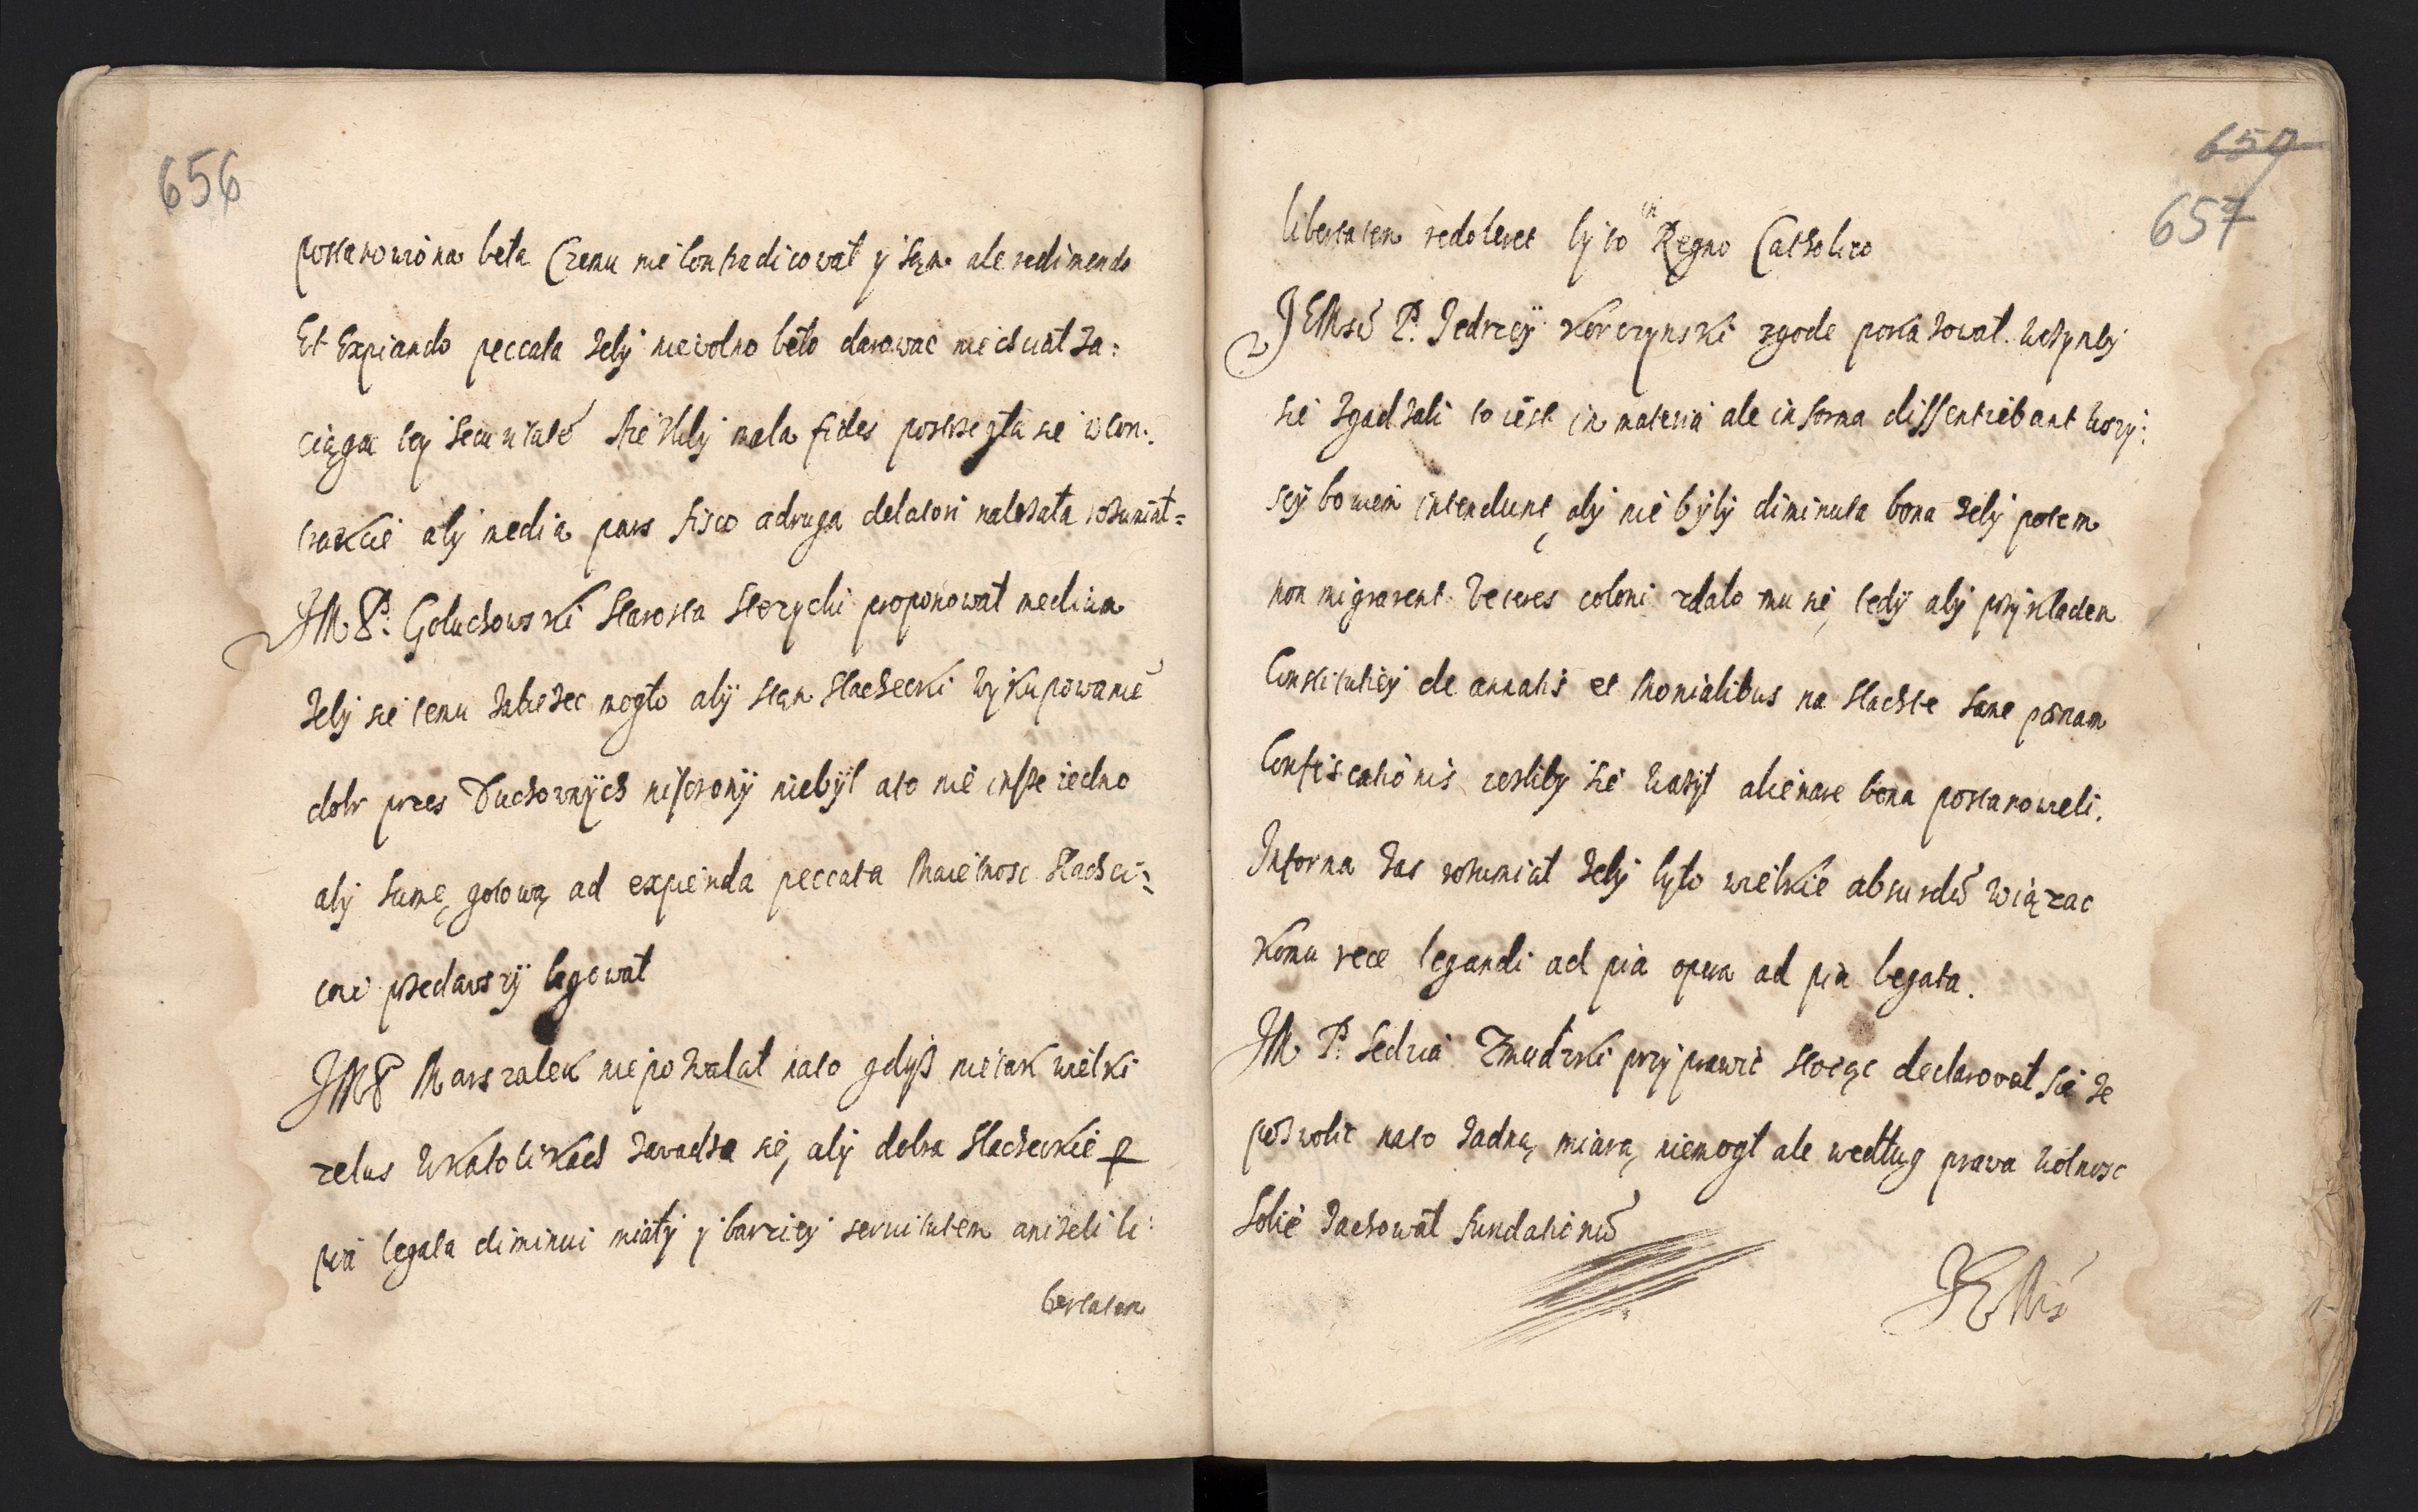 656
postanowiona beła Czemu nie contradicował y sęn. ale redimendo
Et Expiando peccata żeby niewolno beło darowac niechciał za:
ciągac tey securitate że żeby mala fides postrzegła sie w con:
trakcie aby media pars fisco a druga delatori należała rozumiał=
JM P: Goluchowski Starosta Stezycki proponował medium
żeby sie temu zabieżec mogło aby stan Slachecki wykupowanie
dobr przes Duchownych nisczony niebył a to nie insze iedno
aby sumę gotową ad expienda peccata Maietnosc Slachci=
cowi przedawszy legował
JMP Marszalek niepozwalał nato gdysz nietak wielki
zelus w katolikach zawadza się, aby dobra Slacheckie p
pia legata diminui miały y barziey seruitutem aniżeli li:
bertatem
657
657
libertatem redoleret było in Regno Catholico
JEMsć P. Jedrzey Korczynski zgode pokazował. w czymby
sie zgadzali to iest in materia ale in forma dissentiebant wszy:
scy bowiem intendunt aby nie były diminuta bona żeby potem
non migrarent. Veteres coloni zdało mu sie, tedy aby przykładem
Constitutiey de annatis et Monialibus na Slachte same pœnam
Confiscationis iesliby sie ważył alienare bona postanowieli.
In forma zas rozumiał żeby było wielkie absurdū wiązac
komu rece legandi ad pia opera ad pia legata.
JM P. Sedzia Zmudzki przy prawie stoiąc declarował sie że
pozwolic nato żadną miarą niemogł ale według prawa wolnosc
sobie zachował fundationū
JEMsć